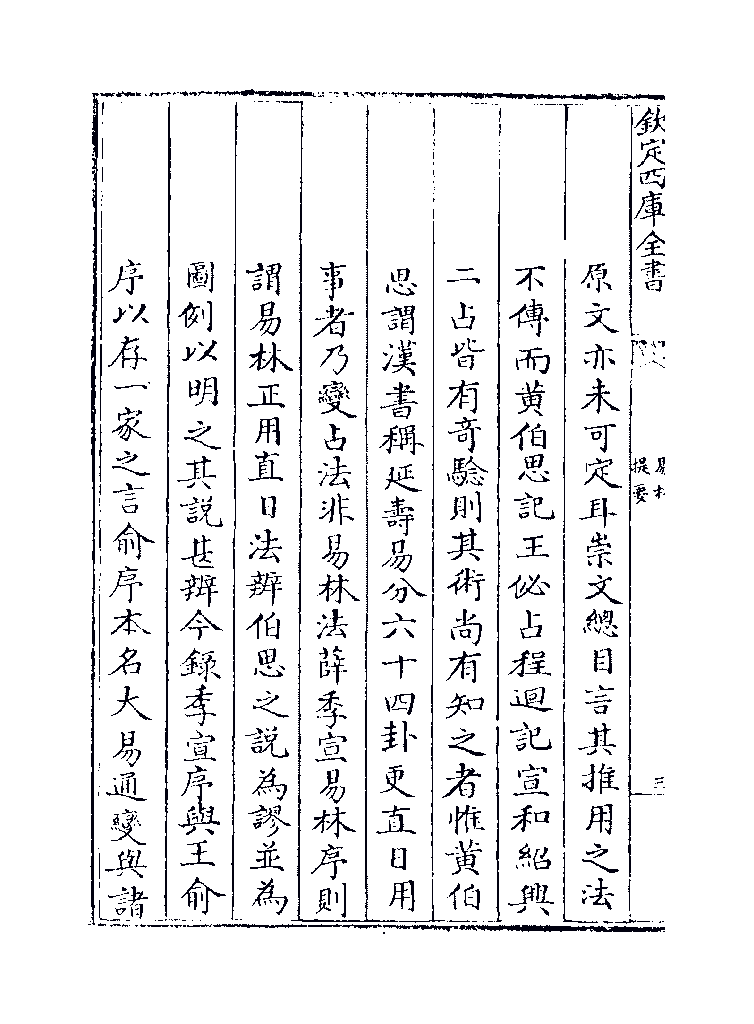 欽定四庫全書
易林
提要
三
原文亦未可定耳崇文總目言其推用之法
不傳而黃伯思記王佖占程迥記宣和紹興
二占皆有奇驗則其術尚有知之者惟黃伯
思謂漢書稱延壽易分六十四卦更直日用
事者乃變占法非易林法薛季宣易林序則
謂易林正用直日法辨伯思之說為謬並為
圖例以明之其說甚辨今錄季宣序與王俞
序以存一家之言俞序本名大易通變與諸